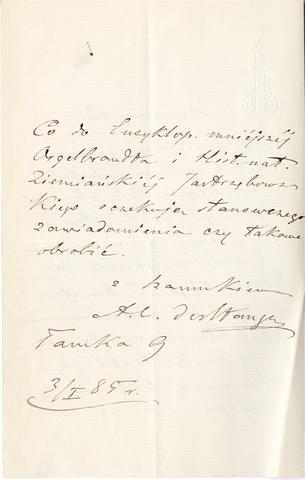 Co do Encyklop. mniejszéj
Orgelbrandta i Hist. nat.
Ziemiańskiéj Jastrzębows
kiego oczekuję stanowczego
zawiadomienia czy takowe
obrobić.
z szacunkiem
A. L.
Tamka 9
3/I 85 r.